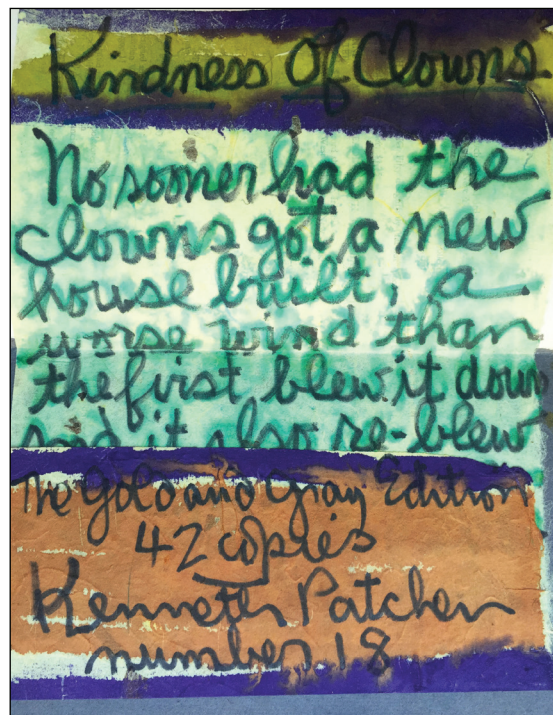 Kindness Of Clowns.
No sooner had the
clowns got a new
house built, a
worse wind than
the first blew it down
and it also re-blew
The Gold and Gray Edition
42 copies
Kenneth Patchen
number 18